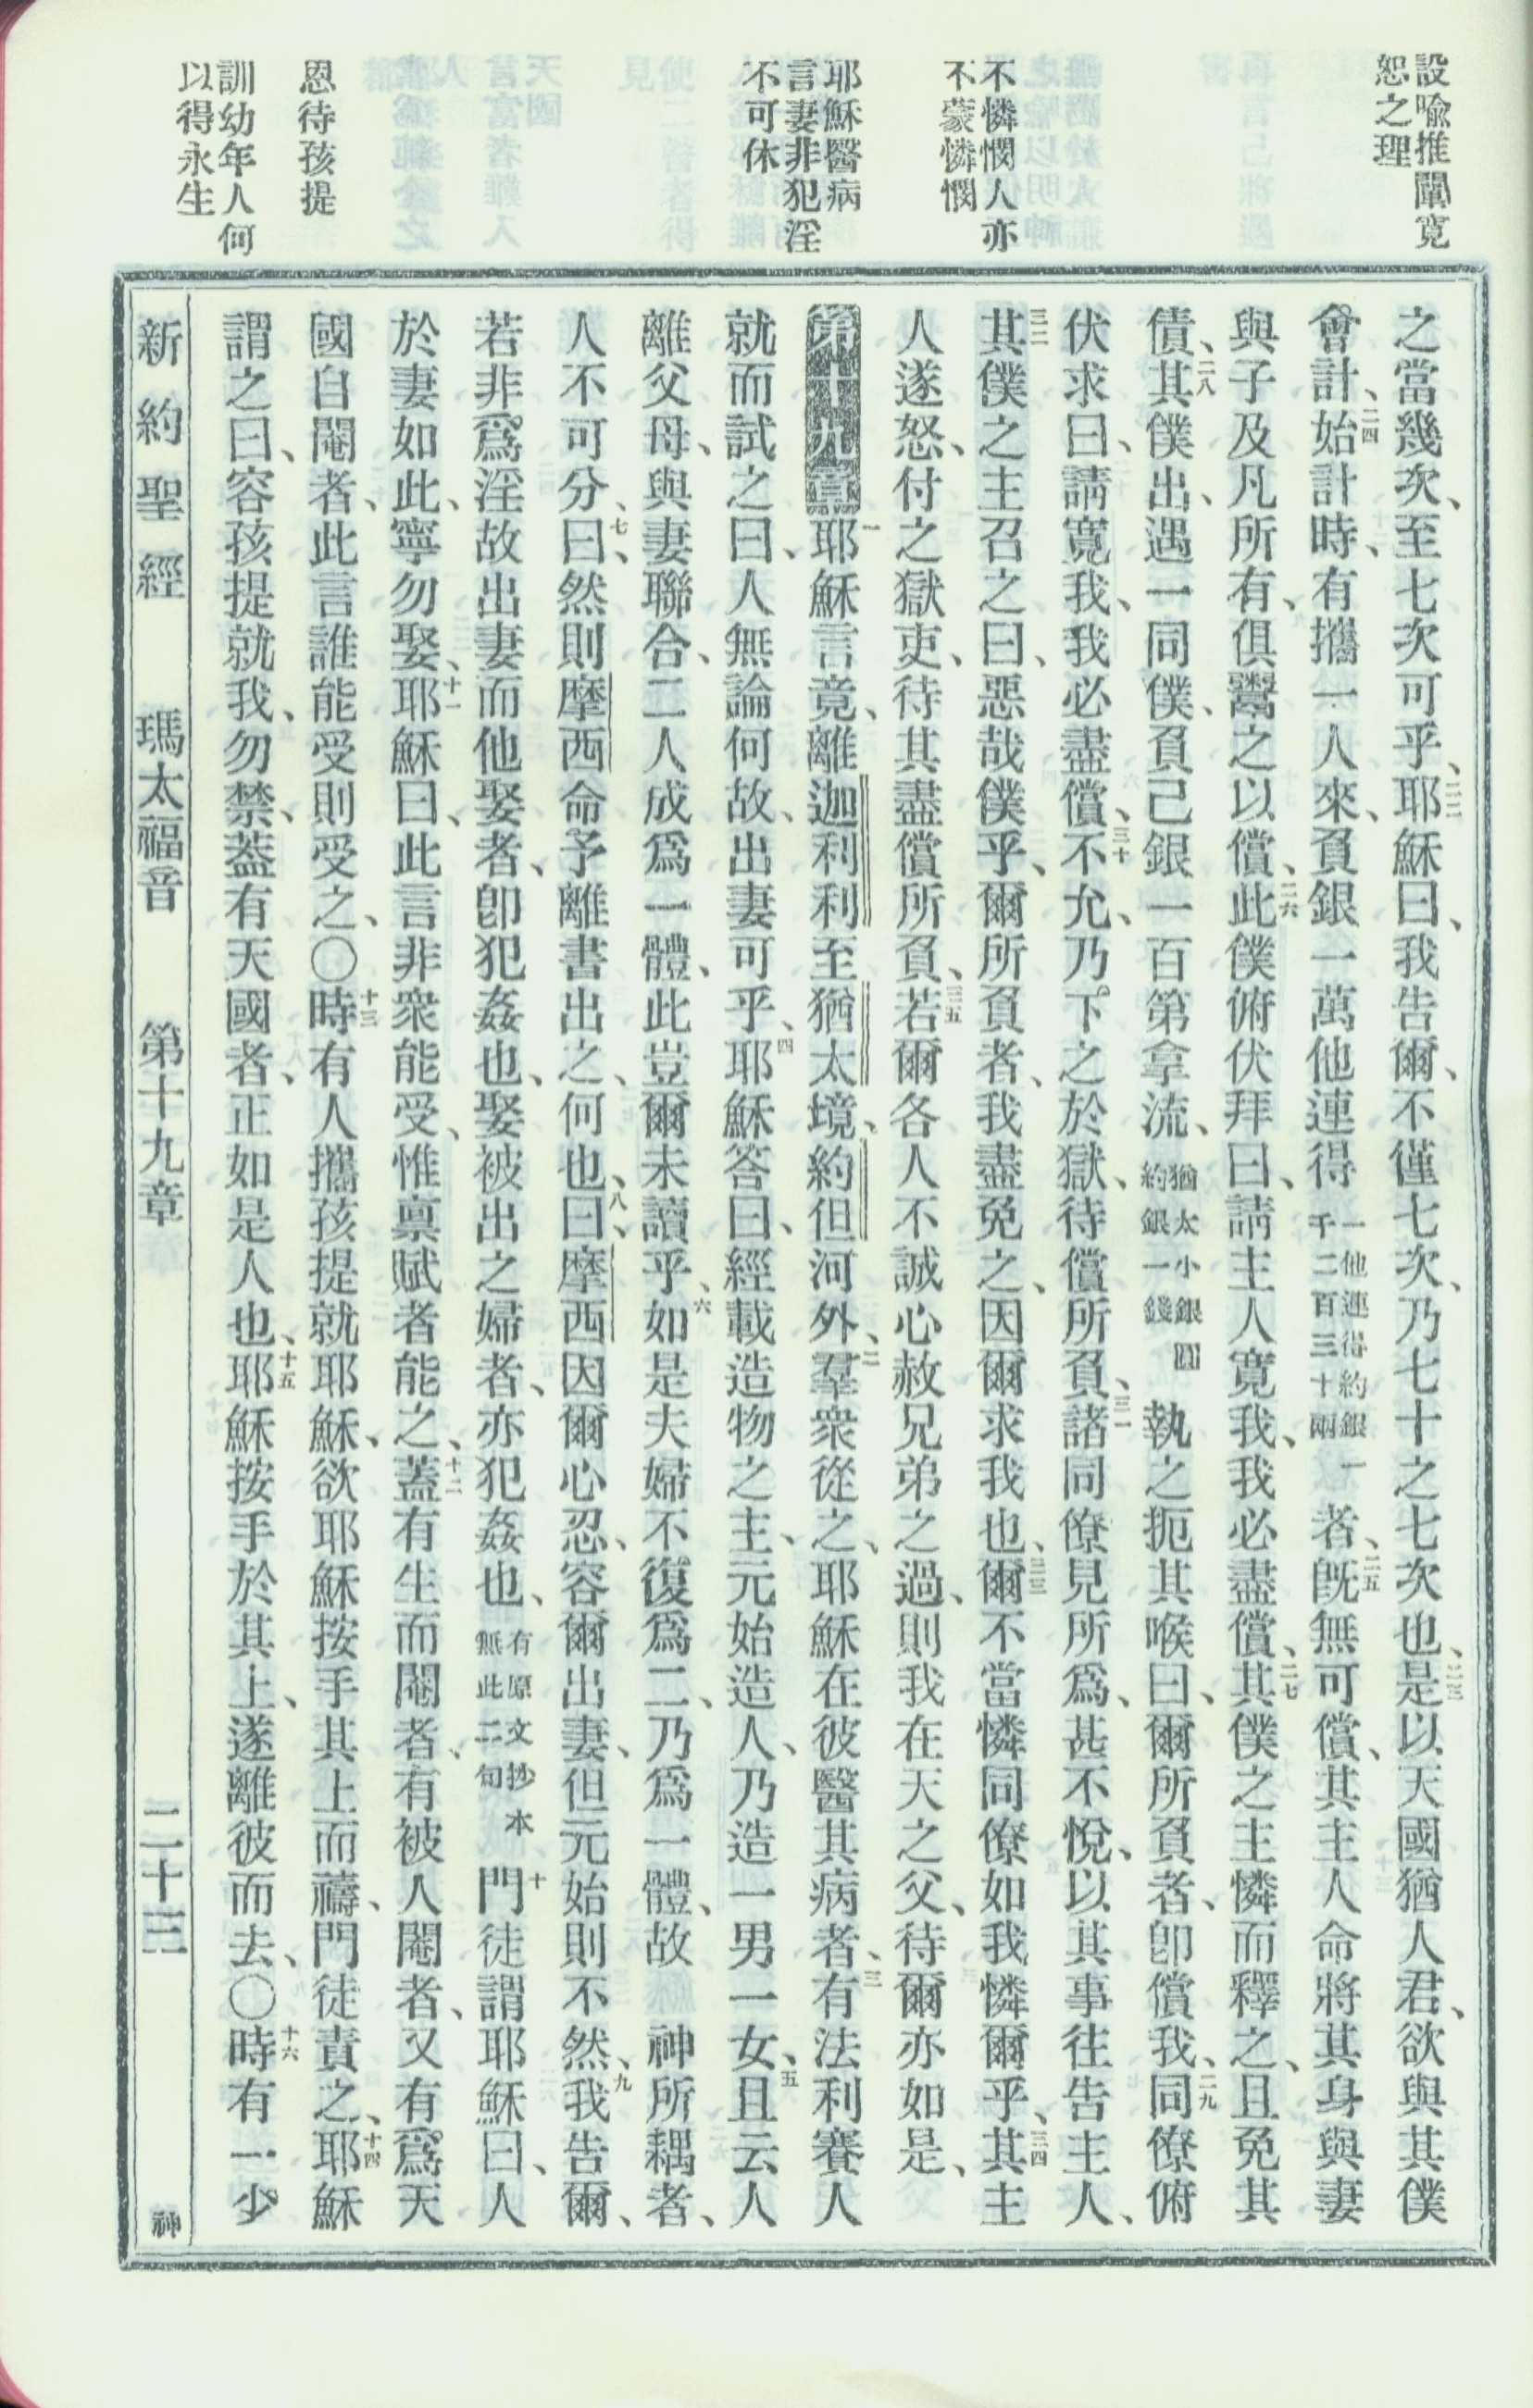 設喩推闡寬
恕之理
不憐憫人亦
不蒙憐憫
耶穌醫病
言妻非犯淫
不可休
恩待孩提
訓幼年人何
以得永生
之當幾次、至七次可乎、二二耶穌曰、我告爾、不僅七次、乃七十之七次也、二三是以天國猶人君、欲與其僕
會計、二四始計時、有攜一人來、負銀一萬他連得一他連得約銀一千二百三十兩者、二五旣無可償、其主人命將其身與妻
與子及凡所有、俱鬻之以償、二六此僕俯伏拜曰、請主人寬我、我必盡償、二七其僕之主憐而釋之、且免其
債、二八其僕出、遇一同僕、負己銀一百第拿流、猶太小銀圓約銀一錢執之扼其喉曰、爾所負者、卽償我、二九同僚俯
伏求曰、請寬我、我必盡償、三十不允、乃下之於獄、待償所負、三一諸同僚見所爲、甚不悅、以其事往告主人、
三二其僕之主召之曰、惡哉僕乎、爾所負者、我盡免之、因爾求我也、三三爾不當憐同僚如我憐爾乎、三四其主
人遂怒、付之獄吏、待其盡償所負、三五若爾各人不誠心赦兄弟之過、則我在天之父、待爾亦如是、
第十九章一耶穌言竟、離迦利利至猶太境、約但河外、二羣衆從之、耶穌在彼醫其病者、三有法利賽人
就而試之曰、人無論何故、出妻可乎、四耶穌答曰、經載造物之主、元始造人、乃造一男一女、五且云人
離父母、與妻聯合、二人成爲一體、此豈爾未讀乎、六如是夫婦不復爲二、乃爲一體、故 神所耦者、
人不可分、七曰、然則摩西命予離書出之、何也、八曰、摩西因爾心忍、容爾出妻、但元始則不然、九我告爾、
若非爲淫故出妻而他娶者、卽犯姦也、娶被出之婦者、亦犯姦也、有原文抄本無此二句十門徒謂耶穌曰、人
於妻如此、寧勿娶、十一耶穌曰、此言非衆能受、惟禀賦者能之、十二蓋有生而閹者、有被人閹者、又有爲天
國自閹者、此言誰能受則受之、〇十三時有人攜孩提就耶穌、欲耶穌按手其上而禱、門徒責之、十四耶穌
謂之曰、容孩提就我、勿禁、蓋有天國者、正如是人也、十五耶穌按手於其上、遂離彼而去、〇十六時有一少
新約聖經 瑪太福音 第十九章 二十三 神